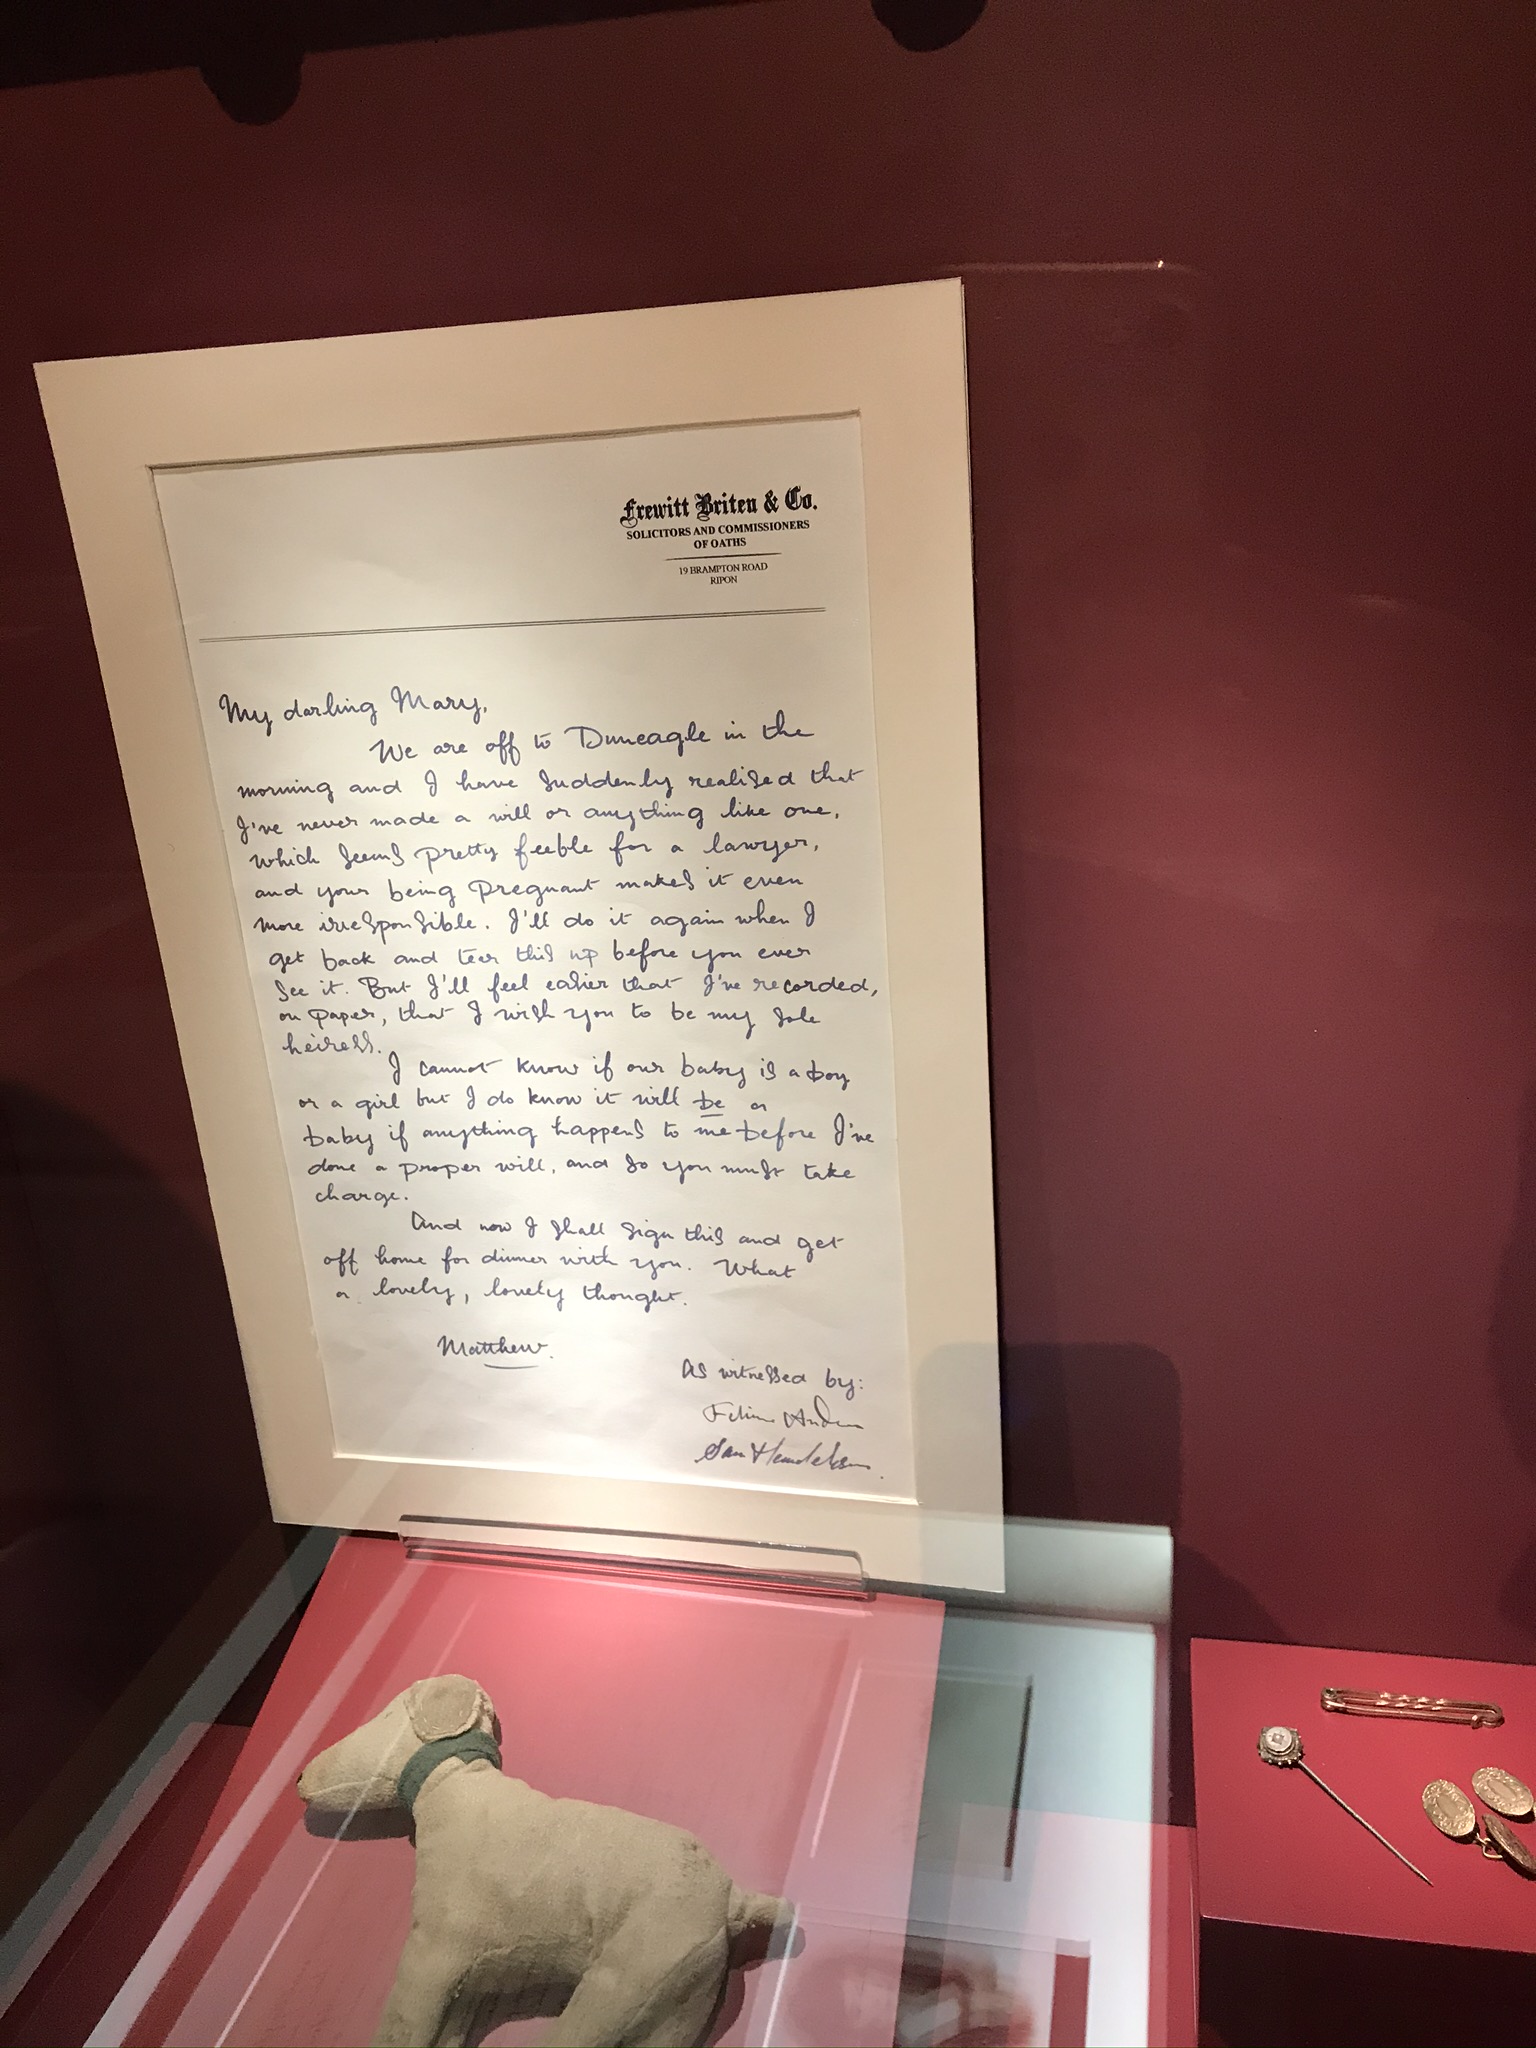 Frewitt Briten & Co.
SOLICITORS AND COMMISSIONERS
OF OATHS
19 BRAMPTON ROAD
RIPON
My darling Mary,
We are off to Duneagle in the
morning and I have suddenly realised that
I've never made a will or anything like one,
which seems pretty feeble for a lawyer,
and your being pregnant makes it even
more irresponsible. I'll do it again when I
get back and tear this up before you ever
see it. But I'll feel easier that I've recorded,
on paper, that I wish you to be my sole
heiress.
I cannot know if our baby is a boy
or a girl but I do know it will be a
baby if anything happens to me before I've
done a proper will, and so you must take
charge.
And now I shall sign this and get
off home for dinner with you. What
a lovely, lovely thought.
Matthew.
As witnessed by: